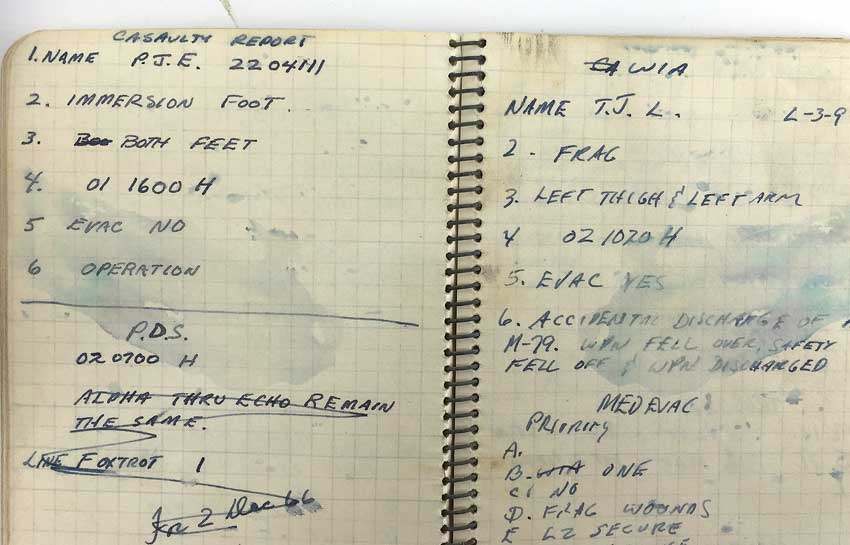 CASAULTY REPORT
1. NAME P.J.E. 2204111
2. IMMERSION FOOT.
3. BOTH FEET
4. 01 1600 H
5 EVAC NO
6 OPERATION
P.D.S.
020700 H
ALPHA THRU ECHO REMAIN
THE SAME.
LINE FOXTROT 1
2 Dec 66
WIA
NAME T.J. L. L-3-9
2. FRAG
3. LEFT THIGH & LEFT ARM
4 021020 H
5. EVAC YES
6. ACCIDENTAL DISCHARGE OF
M-79. WPN FELL OVER, SAFETY
FELL OFF & WPN DISCHARGED
MEDEVAC
PRIORITY
A.
B. WIA ONE
C. NO
D. FRAG WOUNDS
E LZ SECURE